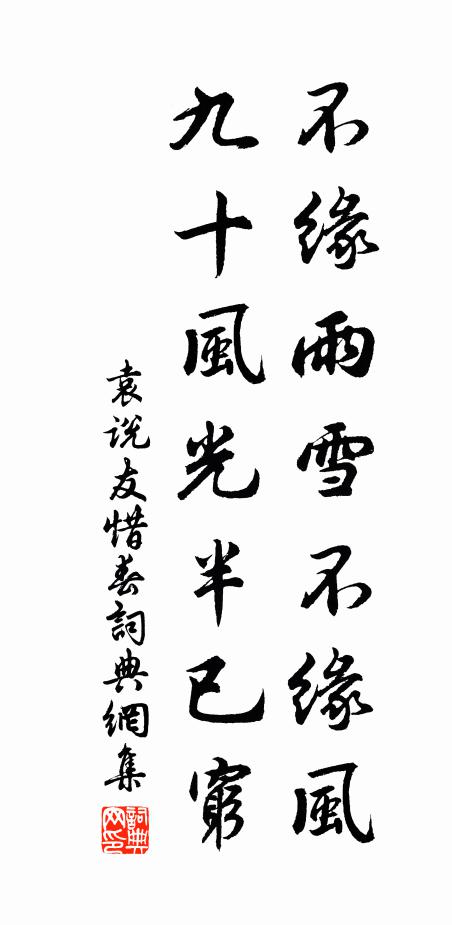 不緣雨雪不緣風
九十風光半已窮
袁说友惜春詞典網集
詞典網印